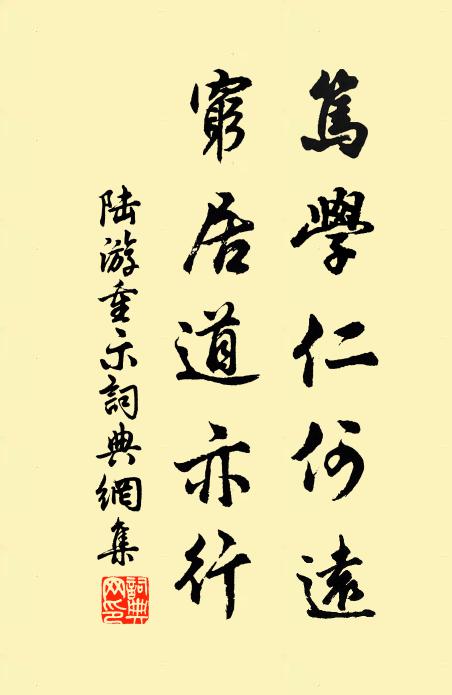 篤學仁何遠
窮居道亦行
陆游重示詞典網集
詞典网印